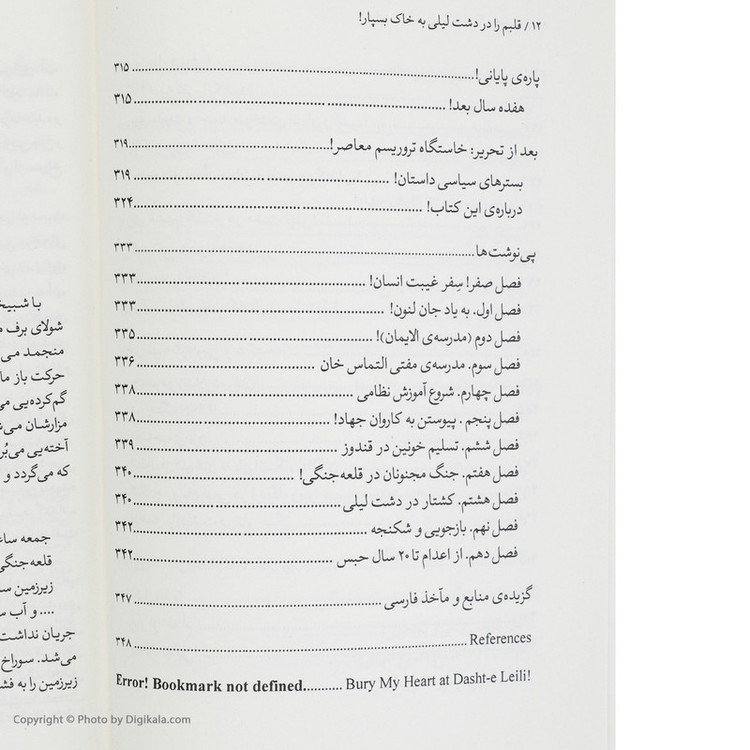 ۱۲ / قلبم را در دشت لیلی به خاک بسپار!
پاره‌ی پایانی! ۳۱۵
هفده سال بعد! ۳۱۵
بعد از تحریر: خاستگاه تروریسم معاصر! ۳۱۹
بسترهای سیاسی داستان! ۳۱۹
درباره‌ی این کتاب! ۳۲۴
پی‌نوشت‌ها ۳۳۳
فصل صفر! سِفر غیبت انسان! ۳۳۳
فصل اول. به یاد جان لنون! ۳۳۳
فصل دوم (مدرسه‌ی الایمان)! ۳۳۵
فصل سوم. مدرسه‌ی مفتی التماس خان ۳۳۶
فصل چهارم. شروع آموزش نظامی ۳۳۸
فصل پنجم . پیوستن به کاروان جهاد! ۳۳۸
فصل ششم. تسلیم خونین در قندوز ۳۳۹
فصل هفتم. جنگ مجنونان در قلعه‌جنگی! ۳۴۰
فصل هشتم. کشتار در دشت لیلی ۳۴۰
فصل نهم. بازجویی و شکنجه ۳۴۲
فصل دهم. از اعدام تا ۲۰ سال حبس ۳۴۲
گزیده‌ی منابع و مآخذ فارسی ۳۴۷
References ۳۴۸
Error! Bookmark not defined. Bury My Heart at Dasht-e Leili!
با
شولای برف
منجمد می
حرکت باز ما
گم‌کرده‌یی
مزارشان
آخته‌یی
که می‌گردد و
جمعه
قلعه‌جنگی
زیرزمین
.... و آب
جریان نداشت
می‌شد. سوراخ
زیرزمین را به
Copyright © Photo by Digikala.com